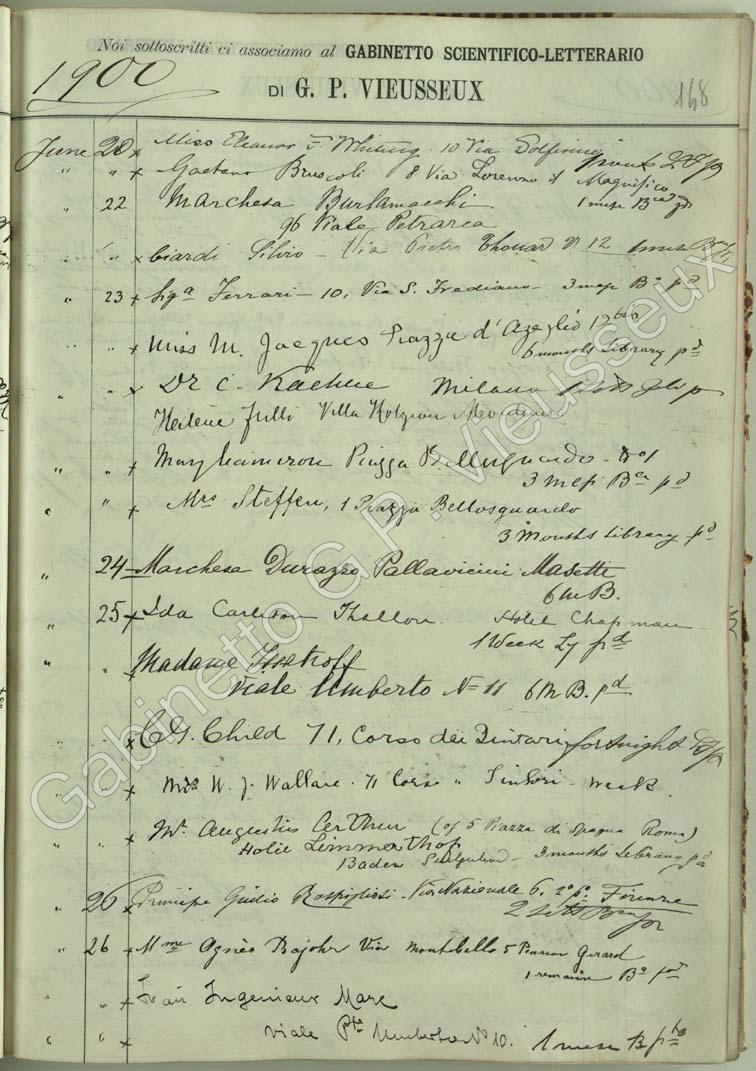 Noi sottoscritti ci associamo al GABINETTO SCIENTIFICO-LETTERARIO
DI G. P. VIEUSSEUX
1900
168
June 20 x Miss Eleanor F Whiting 10 Via Solferino
" " x Gaetano Bruscoli 8 Via Lorenzo il Magnifico
" 22 Marchesa Burlamacchi 1 mese
96 Viale Petrarca
" " x Ciardi Silvio - Via Pietro Thouar N 12 1 mese
" 23 x Sigª Ferrari - 10, Via S. Frediano - 3 mesi Bª pd
" " x Miss M. Jacques Piazza d'Azeglio 12 bis
6 months Library pd
" " x Dr C. Milano
Helène Villa
" " x Mary Cameron Piazza Bellosguardo - No 1
3 mesi Bª pd
" " x Mrs Steffen, 1 Piazza Bellosguardo
3 Months Library pd
" 24 - Marchesa Durazzo Pallavicini Masetti
6 m B.
" 25 x Ida Carleton Thallon. Hotel Chapman
1 Week Ly pd
" " Madame
Viale Umberto No 11 6 m B. pd
x C. G. Child 71, Corso dei Tintori fortnight
" x W. J. Wallace. 71 Corso " Tintori - week
" x Mr Augustus (of 5 Piazza di Spagna Roma)
Limmerthof
Baden - 3 months Library pd
" 26 x Principe Giulio Rospigliosi - Via Nazionale 6. 2º pº Firenze
" 26 x Mme Agnès Bajohr Via Montebello 5 Pension Girard
1 Bª
" " x Frau Ingenieur Marc
" " x Viale Pe Umberto No 10. 1 mese B
Gabinetto G.P. Vieusseux